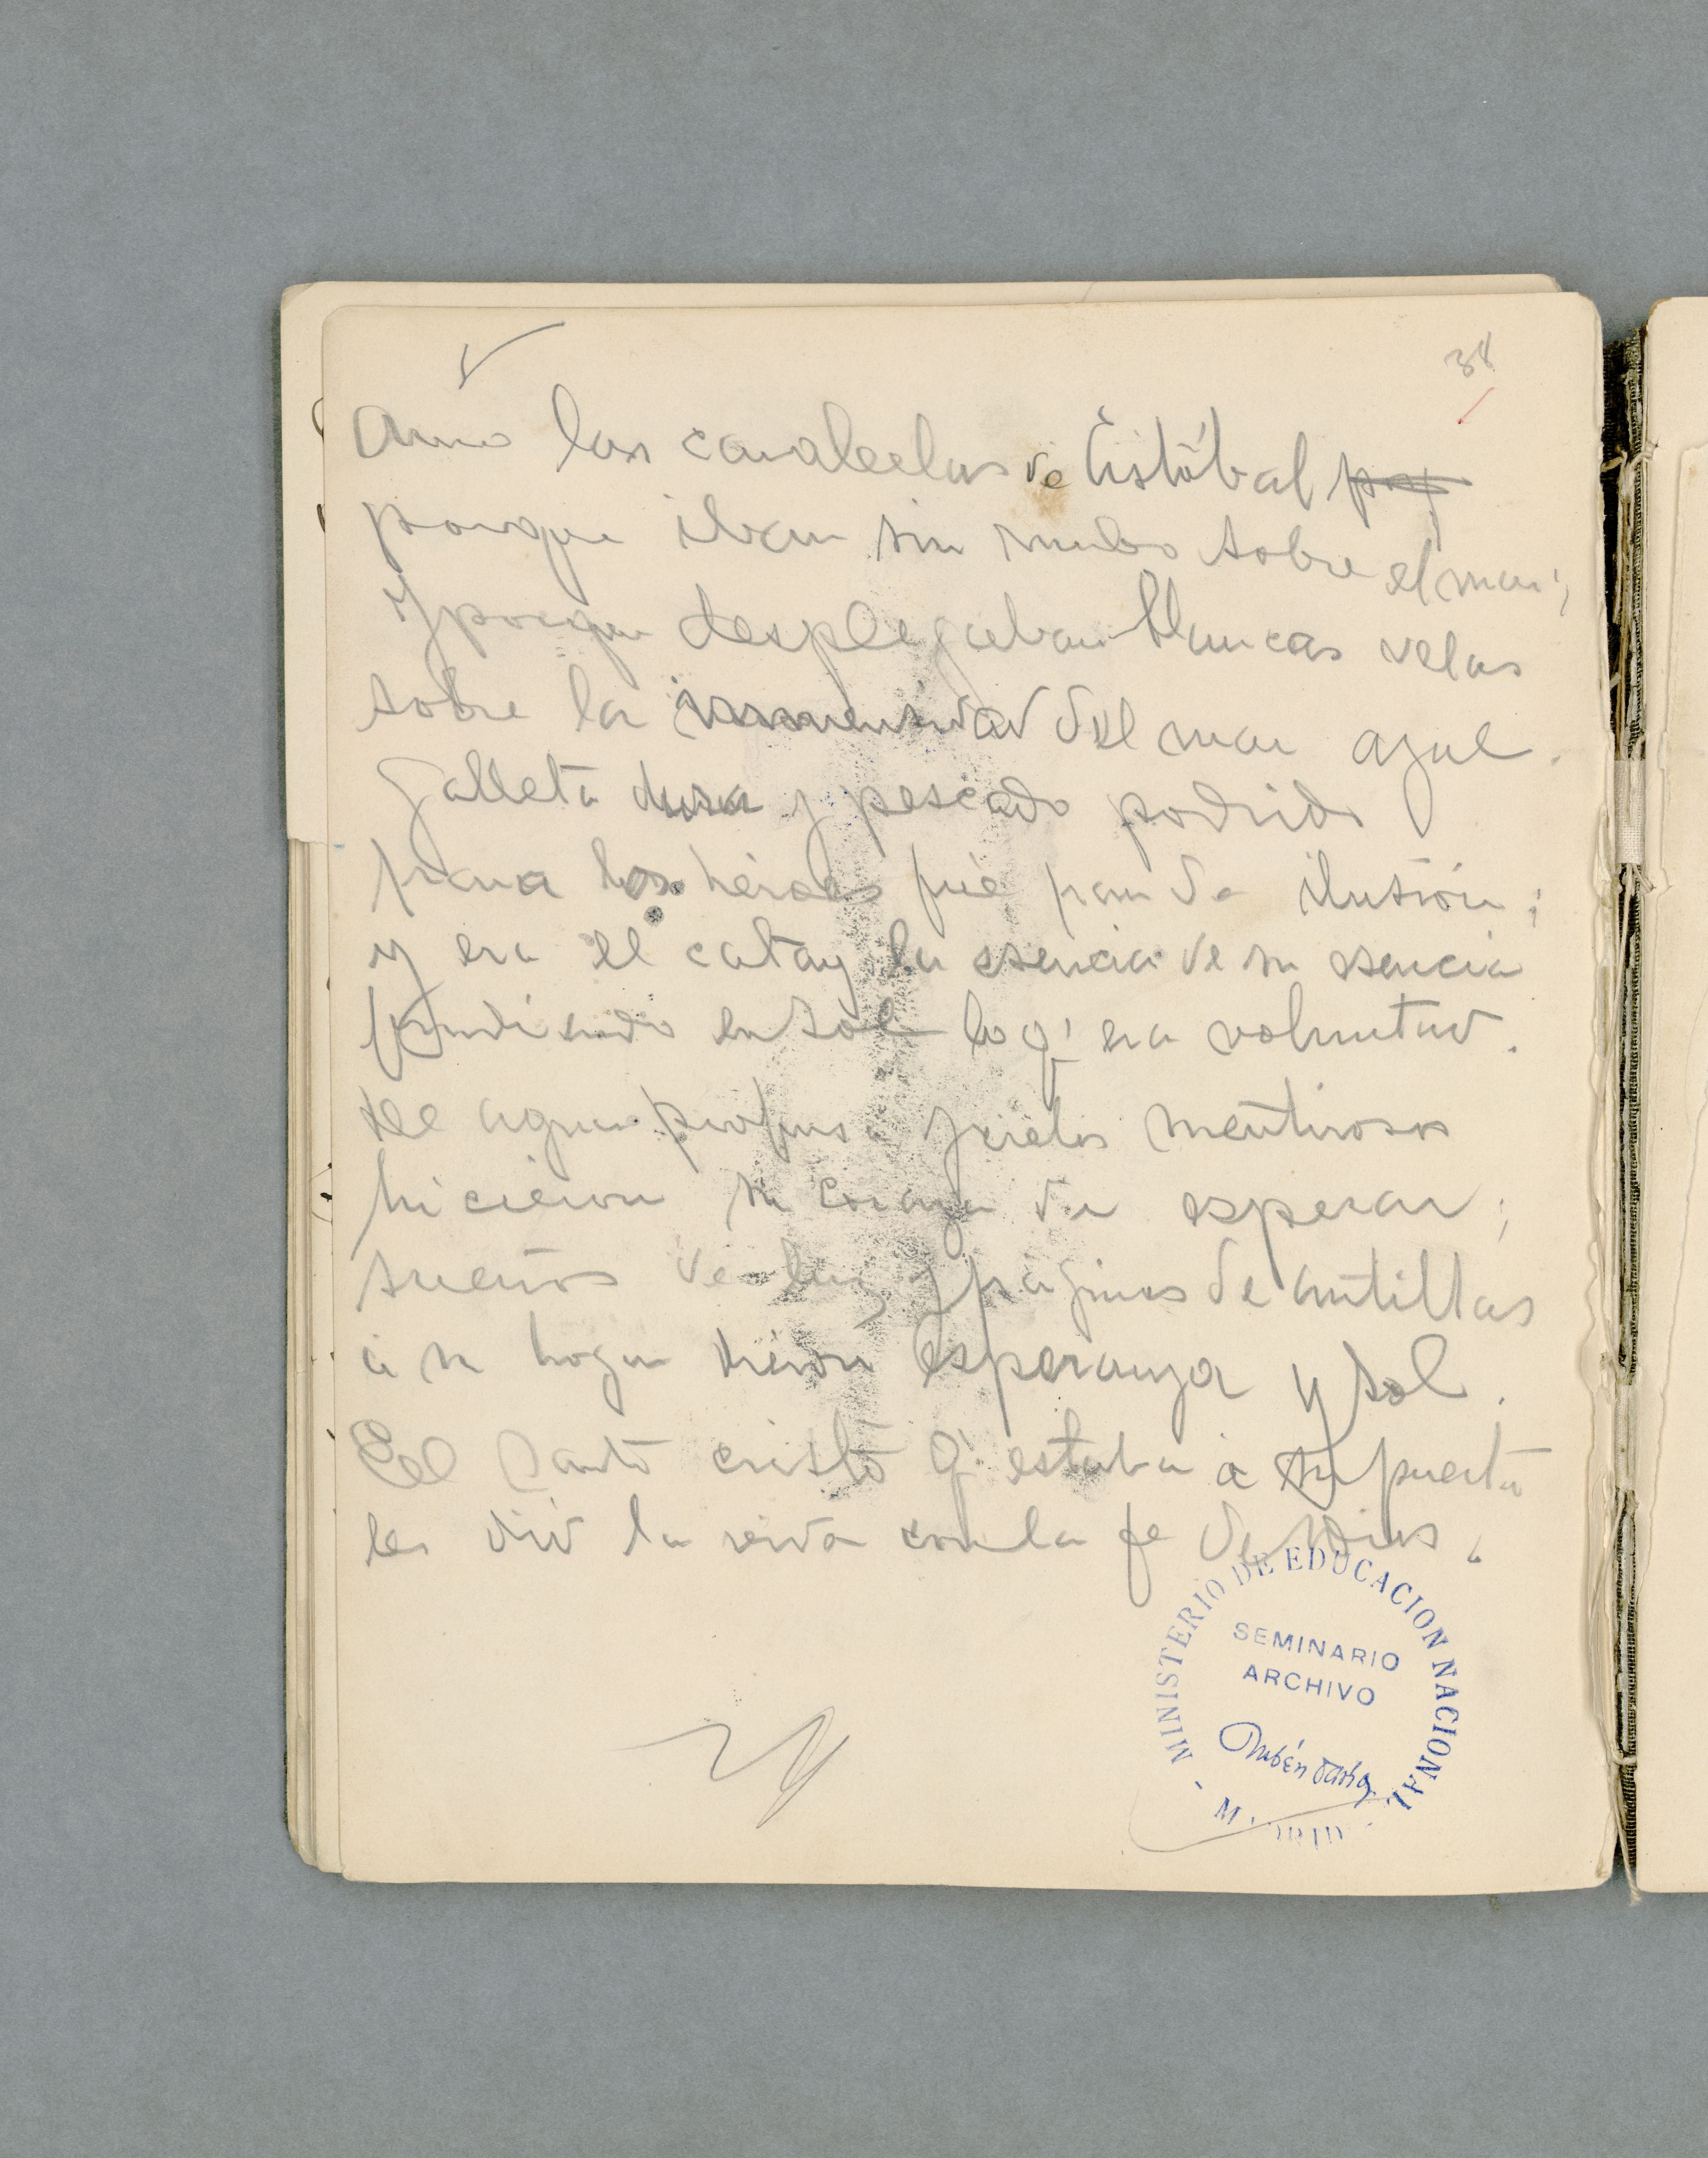 38
Amo las carabelas de Cristóbal
porque iban sin rumbo sobre el mar;
y porque desplegaban blancas velas
sobre la inmensidad del mar azul.
Galleta dura y pescado podrido
para los héroes fué pan de ilusión;
y era el catay la esencia de su esencia
fundiendo en sol lo q' era voluntad.
El agua profusa y cielos mentirosos
hicieron su coraza de esperar;
sueños de luz y páginas de antillas
á su hogar dieron esperanza y sol.
El Santo cristo q' estaba á su puerta
les dió la vida con la fe de Dios.
MINISTERIO DE EDUCACION NACIONAL
SEMINARIO
ARCHIVO
Rubén Darío